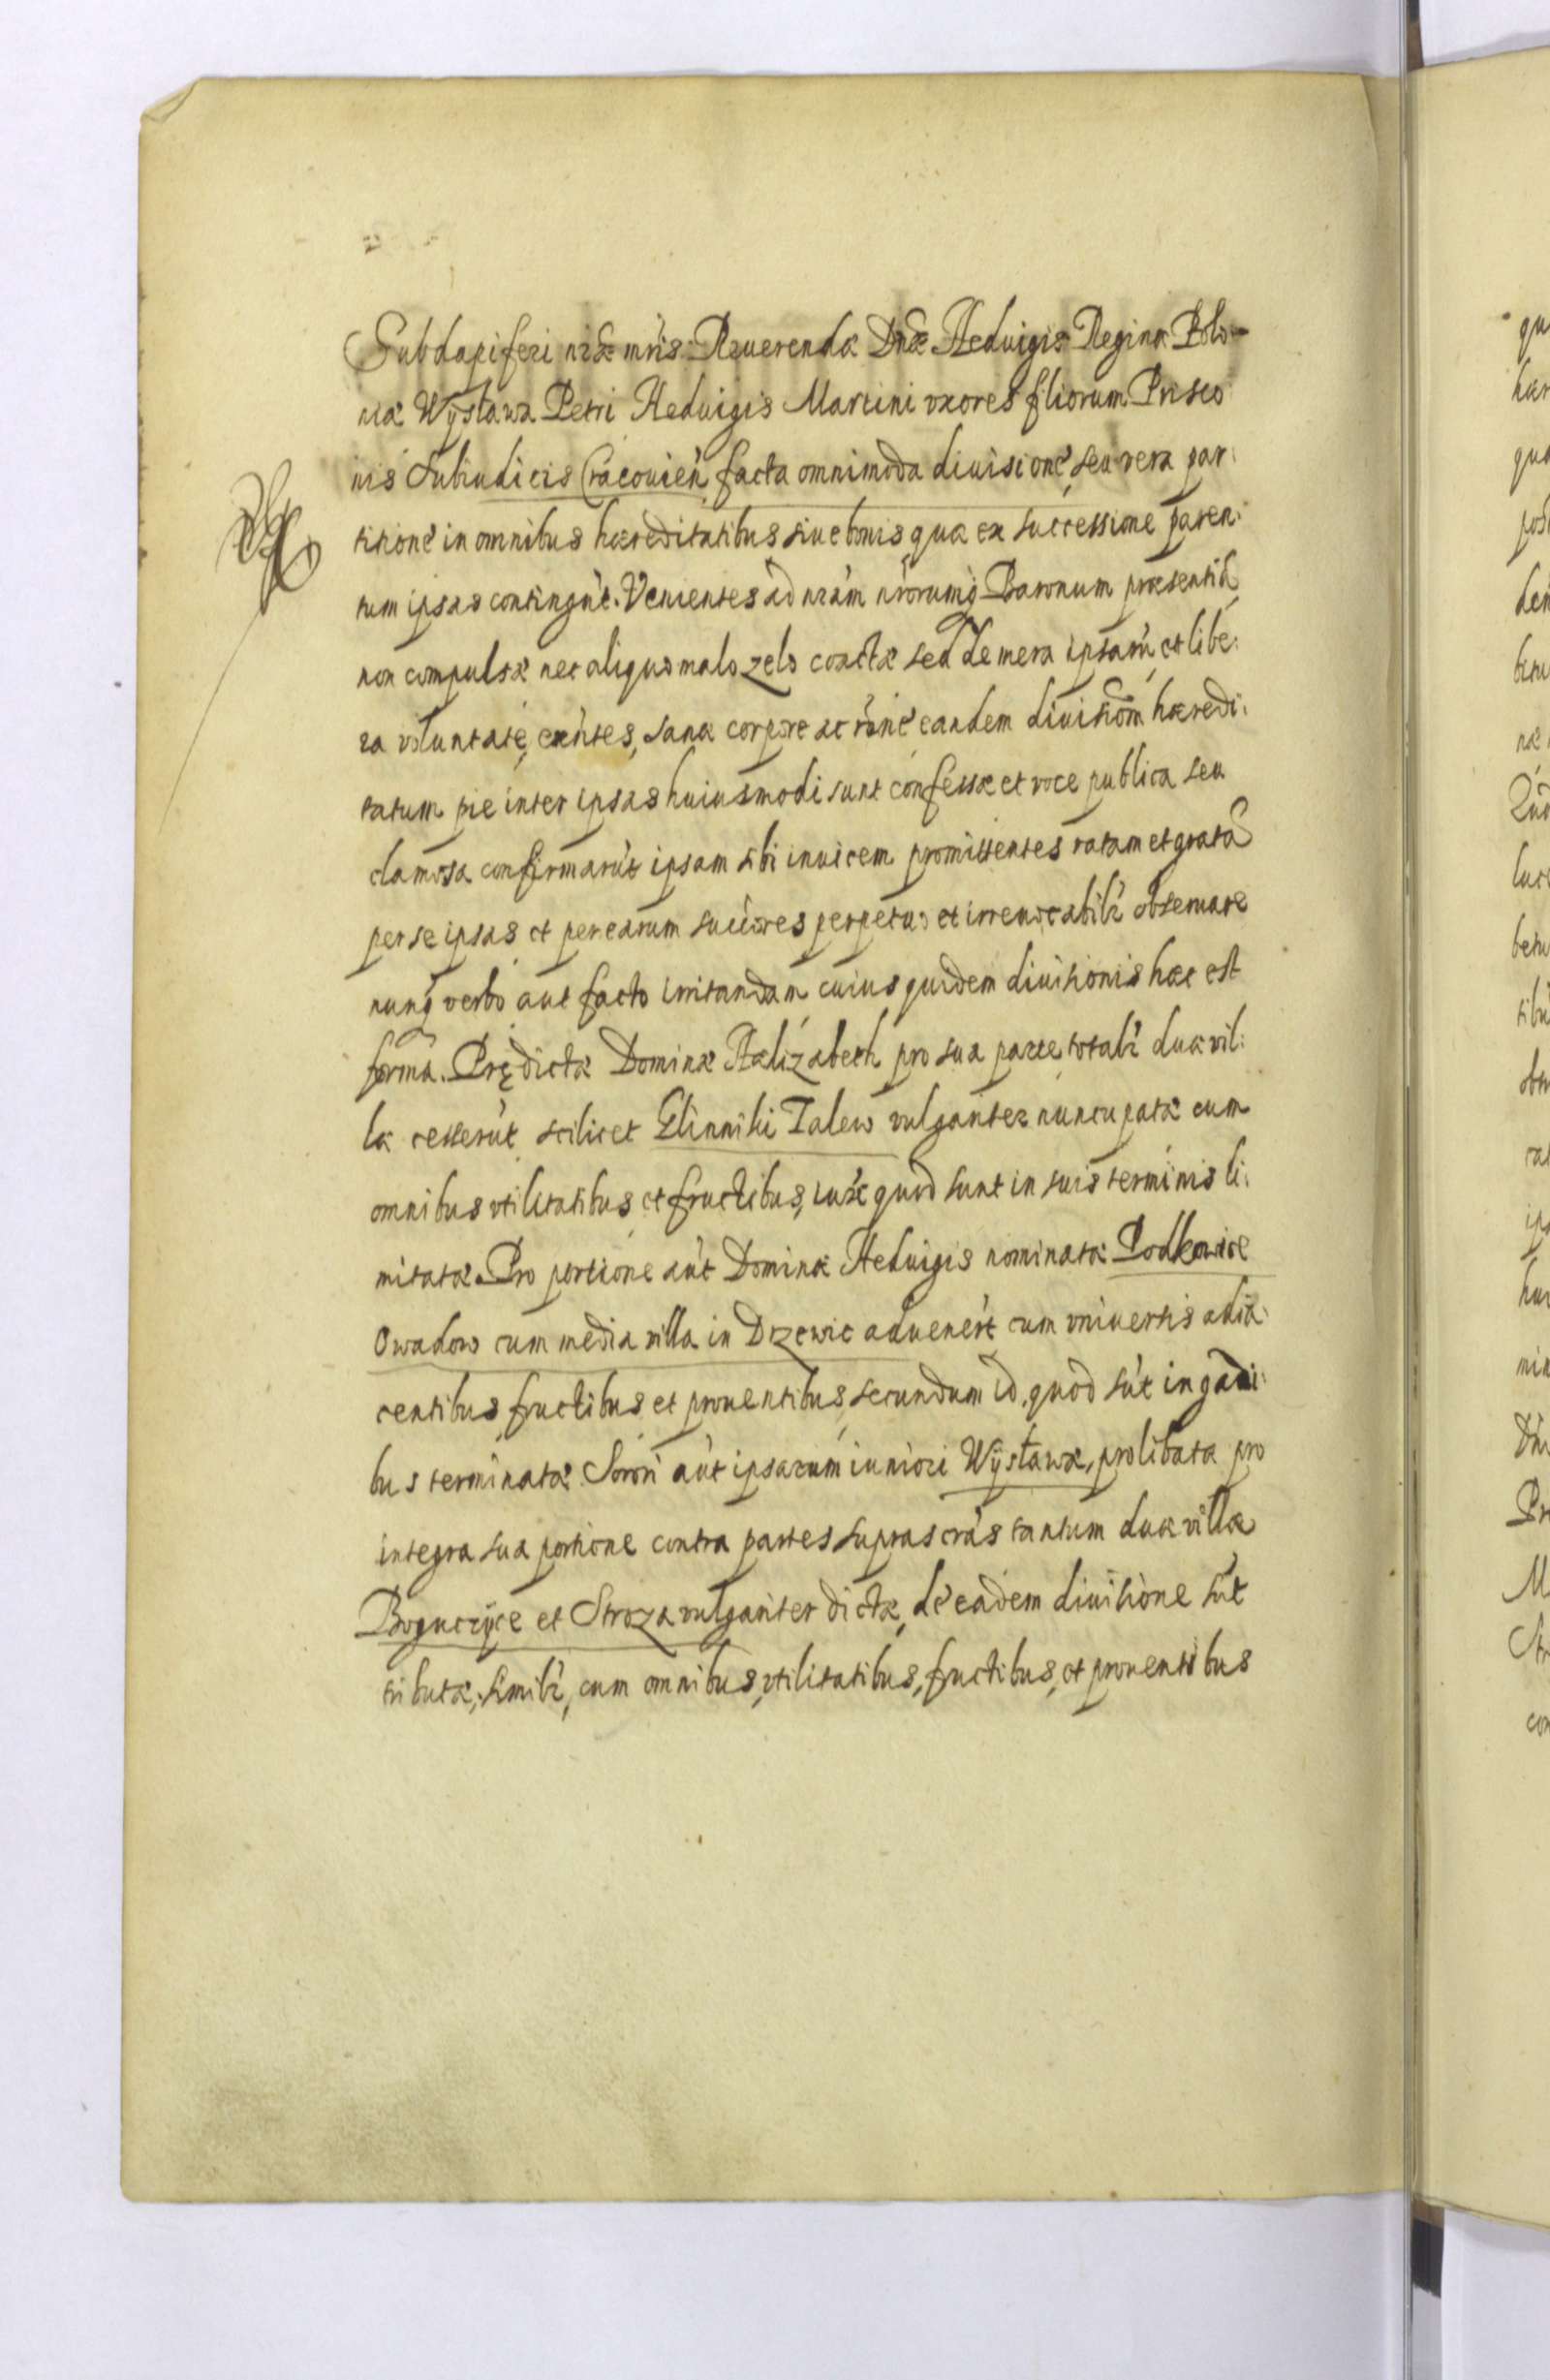 Subdapiferi nræ mris Reuerendæ Dnæ Heduigis Reginæ Polo-
niæ Wÿsława Petri Heduigis Martini vxores filiorum Prisco
nis Subiudicis Cracouień facta omnimoda diuisione seu vera par:
titioné in omnibus hæreditatibus siue bonis quæ ex successione paren:
tum ipsas contingút. Venientes ad nrám nrorumq Baronum præsentiã
non compulsæ nec aliquo malo zelo coactæ sed de mera ipsarú et libe:
ra voluntate, exńtes, sanæ corpore ac róne eandem diuisiom̃ hæredi:
tatum pie inter ipsas huiusmodi sunt confessæ et voce publica seu
clamosa confirmarút ipsam sibi inuicem promittentes ratam et gratã
per se ipsas et per earum succóres perpetuo et irreuocabilr obseruare
nunq̃ verbo aut facto irritandam cuius quidem diuisionis hæc est
forma. Prędictæ Dominæ Hælizabeth pro sua parte totalr duæ vil:
læ cesserút scilicet Glinniki Talew vulgariter nuncupatæ cum
omnibus vtilitatibus et fructibus, iux̃ quod sunt in suis terminis li:
mitatæ. Pro portione aút Dominæ Heduigis nominatæ Podkowice
Owadow cum media villa in Drzewic aduenért cum vniuersis adia:
centibus fructibus et prouentibus, secundum id, quod sút in gadi:
bus terminatæ. Sorori aút ipsarum iuniori Wÿsławæ, prolibata pro
integra sua portione contra partes suprascrás tantum duæ villæ
Boguczÿce et Stroza vulgariter dictæ, de eadem diuisione sút
tributæ, similr, cum omnibus, vtilitatibus, fructibus, et prouentibus